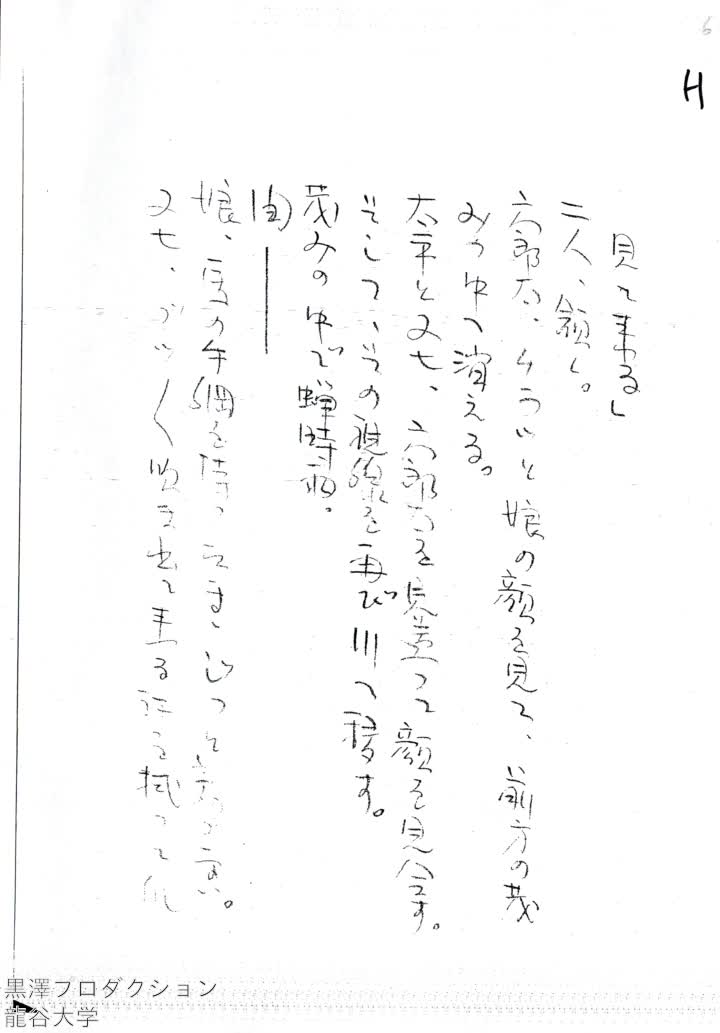 6
H
見て来る」
二人、頷く。
六郎太、ヂロッと娘の顔を見て、前方の茂
みの中へ消える。
太平と又七、六郎太を見送って顔を見合す。
そして、その視線を再び川へ移す。
茂みの中で蝉時雨。
間――
娘、馬の手綱を持ったまゝじっと動かない。
又七、ブツ〱吹き出て来る汗を拭って
黒澤プロダクション
龍谷大学